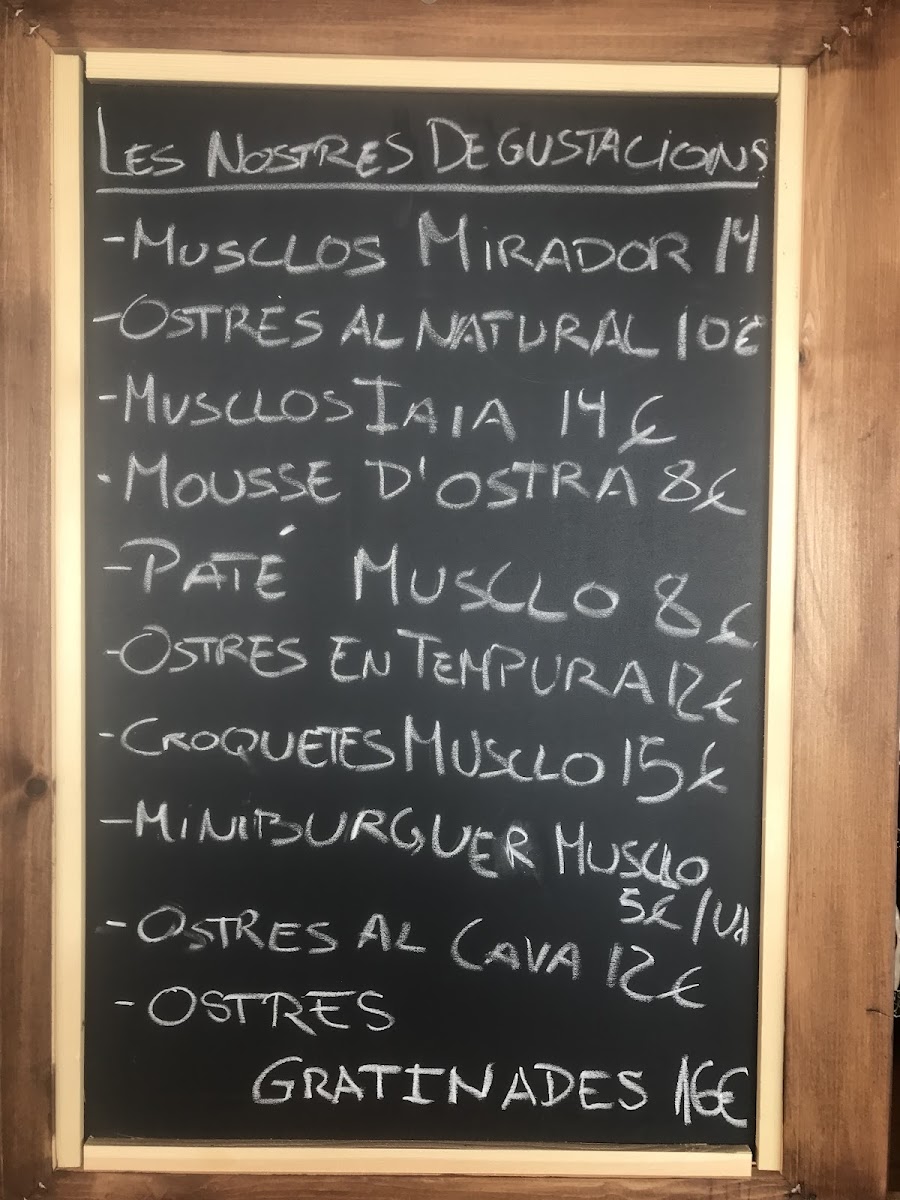 LES NOSTRES DEGUSTACIONS
- MUSCLOS MIRADOR 14
- OSTRES AL NATURAL 10€
- MUSCLOS IAIA 14€
- MOUSSE D'OSTRA 8€
- PATÉ MUSCLO 8€
- OSTRES EN TEMPURA 12€
- CROQUETES MUSCLO 15€
- MINIBURGUER MUSCLO
5€/U
- OSTRES AL CAVA 12€
- OSTRES
GRATINADES 16€